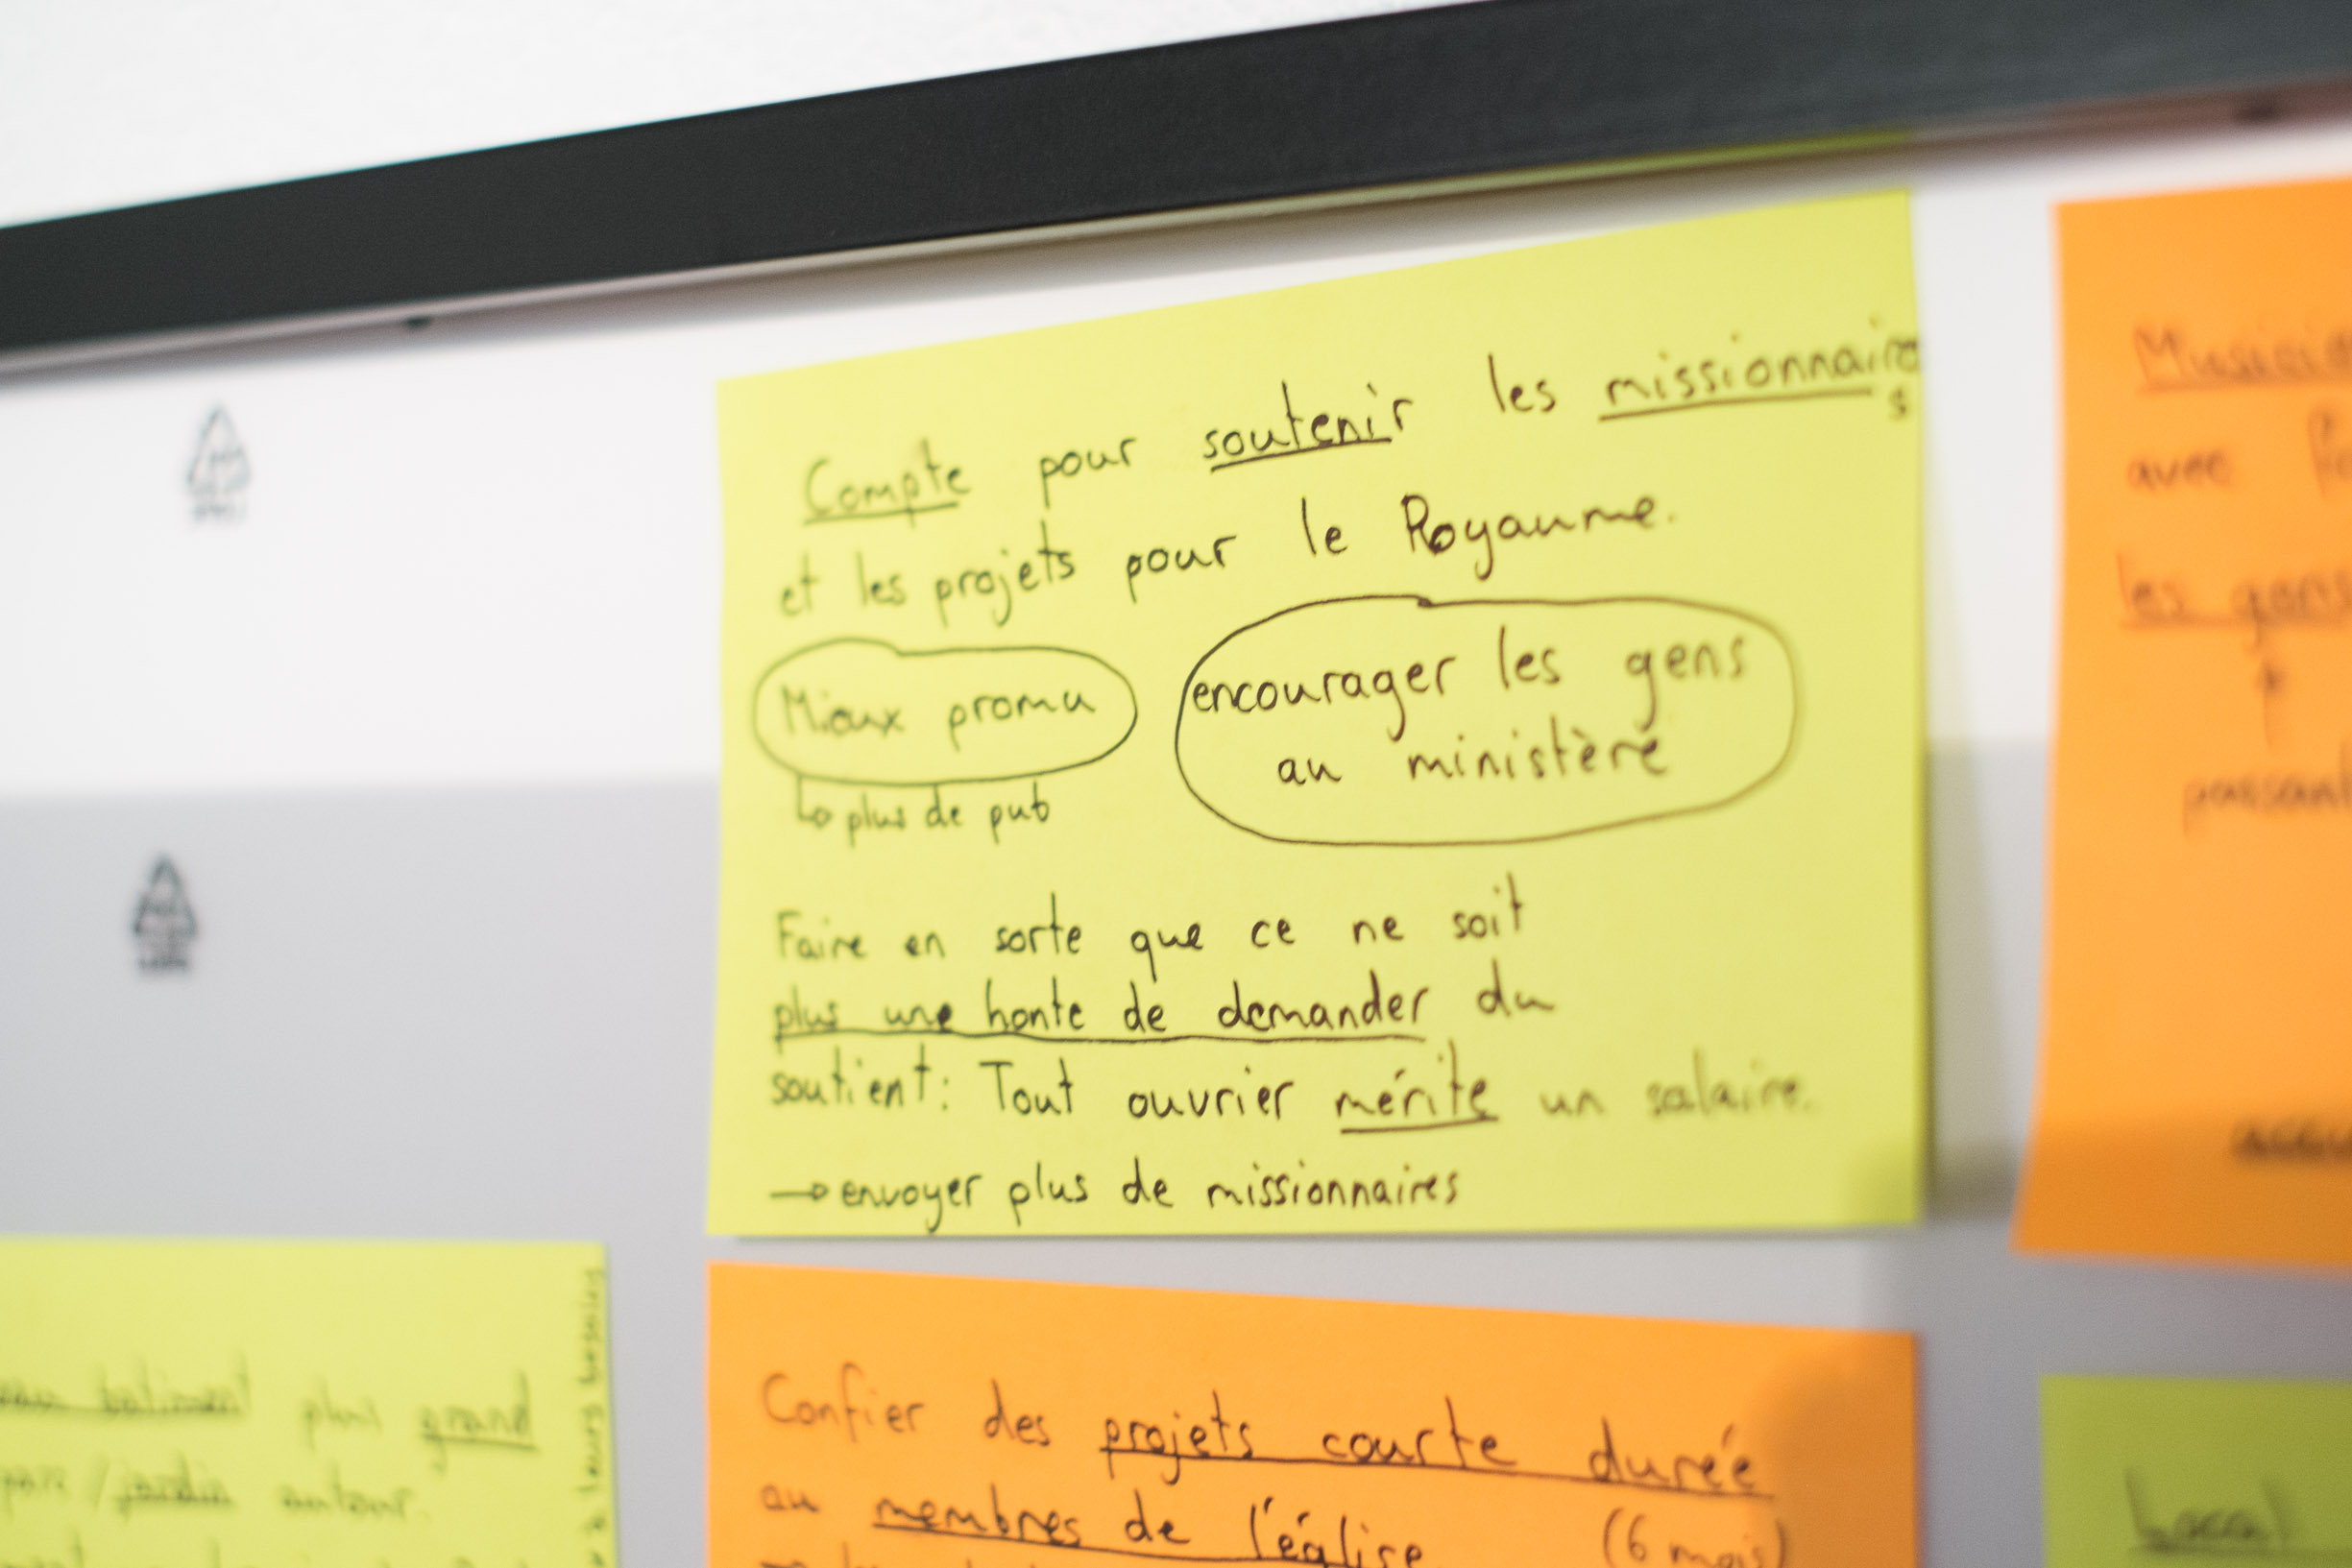 Compte pour soutenir les missionnaires
et les projets pour le Royaume.
Mieux promu
↳ plus de pub
encourager les gens
au ministère
Faire en sorte que ce ne soit
plus une honte de demander du
soutient: Tout ouvrier mérite un salaire.
→ envoyer plus de missionnaires
Confier des projets courte durée
au membres de l'église (6 mois)
avec
les gens
passant
plus grand
autour.
à leurs besoins
Local